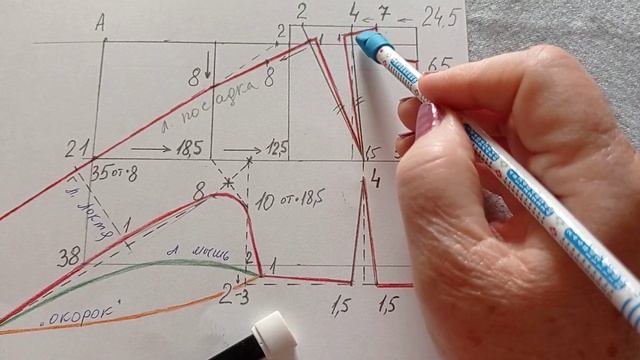 2 4 ← 7 ← 24,5
A
2 1 1
8 8 65
л. посадка
21 → 18,5 → 12,5 15 3
35 от 8
4
л. локтя 8
10 от 18,5
1
38 л мышь 2 1
2-3 1,5 1,5
"ОКОРОК"